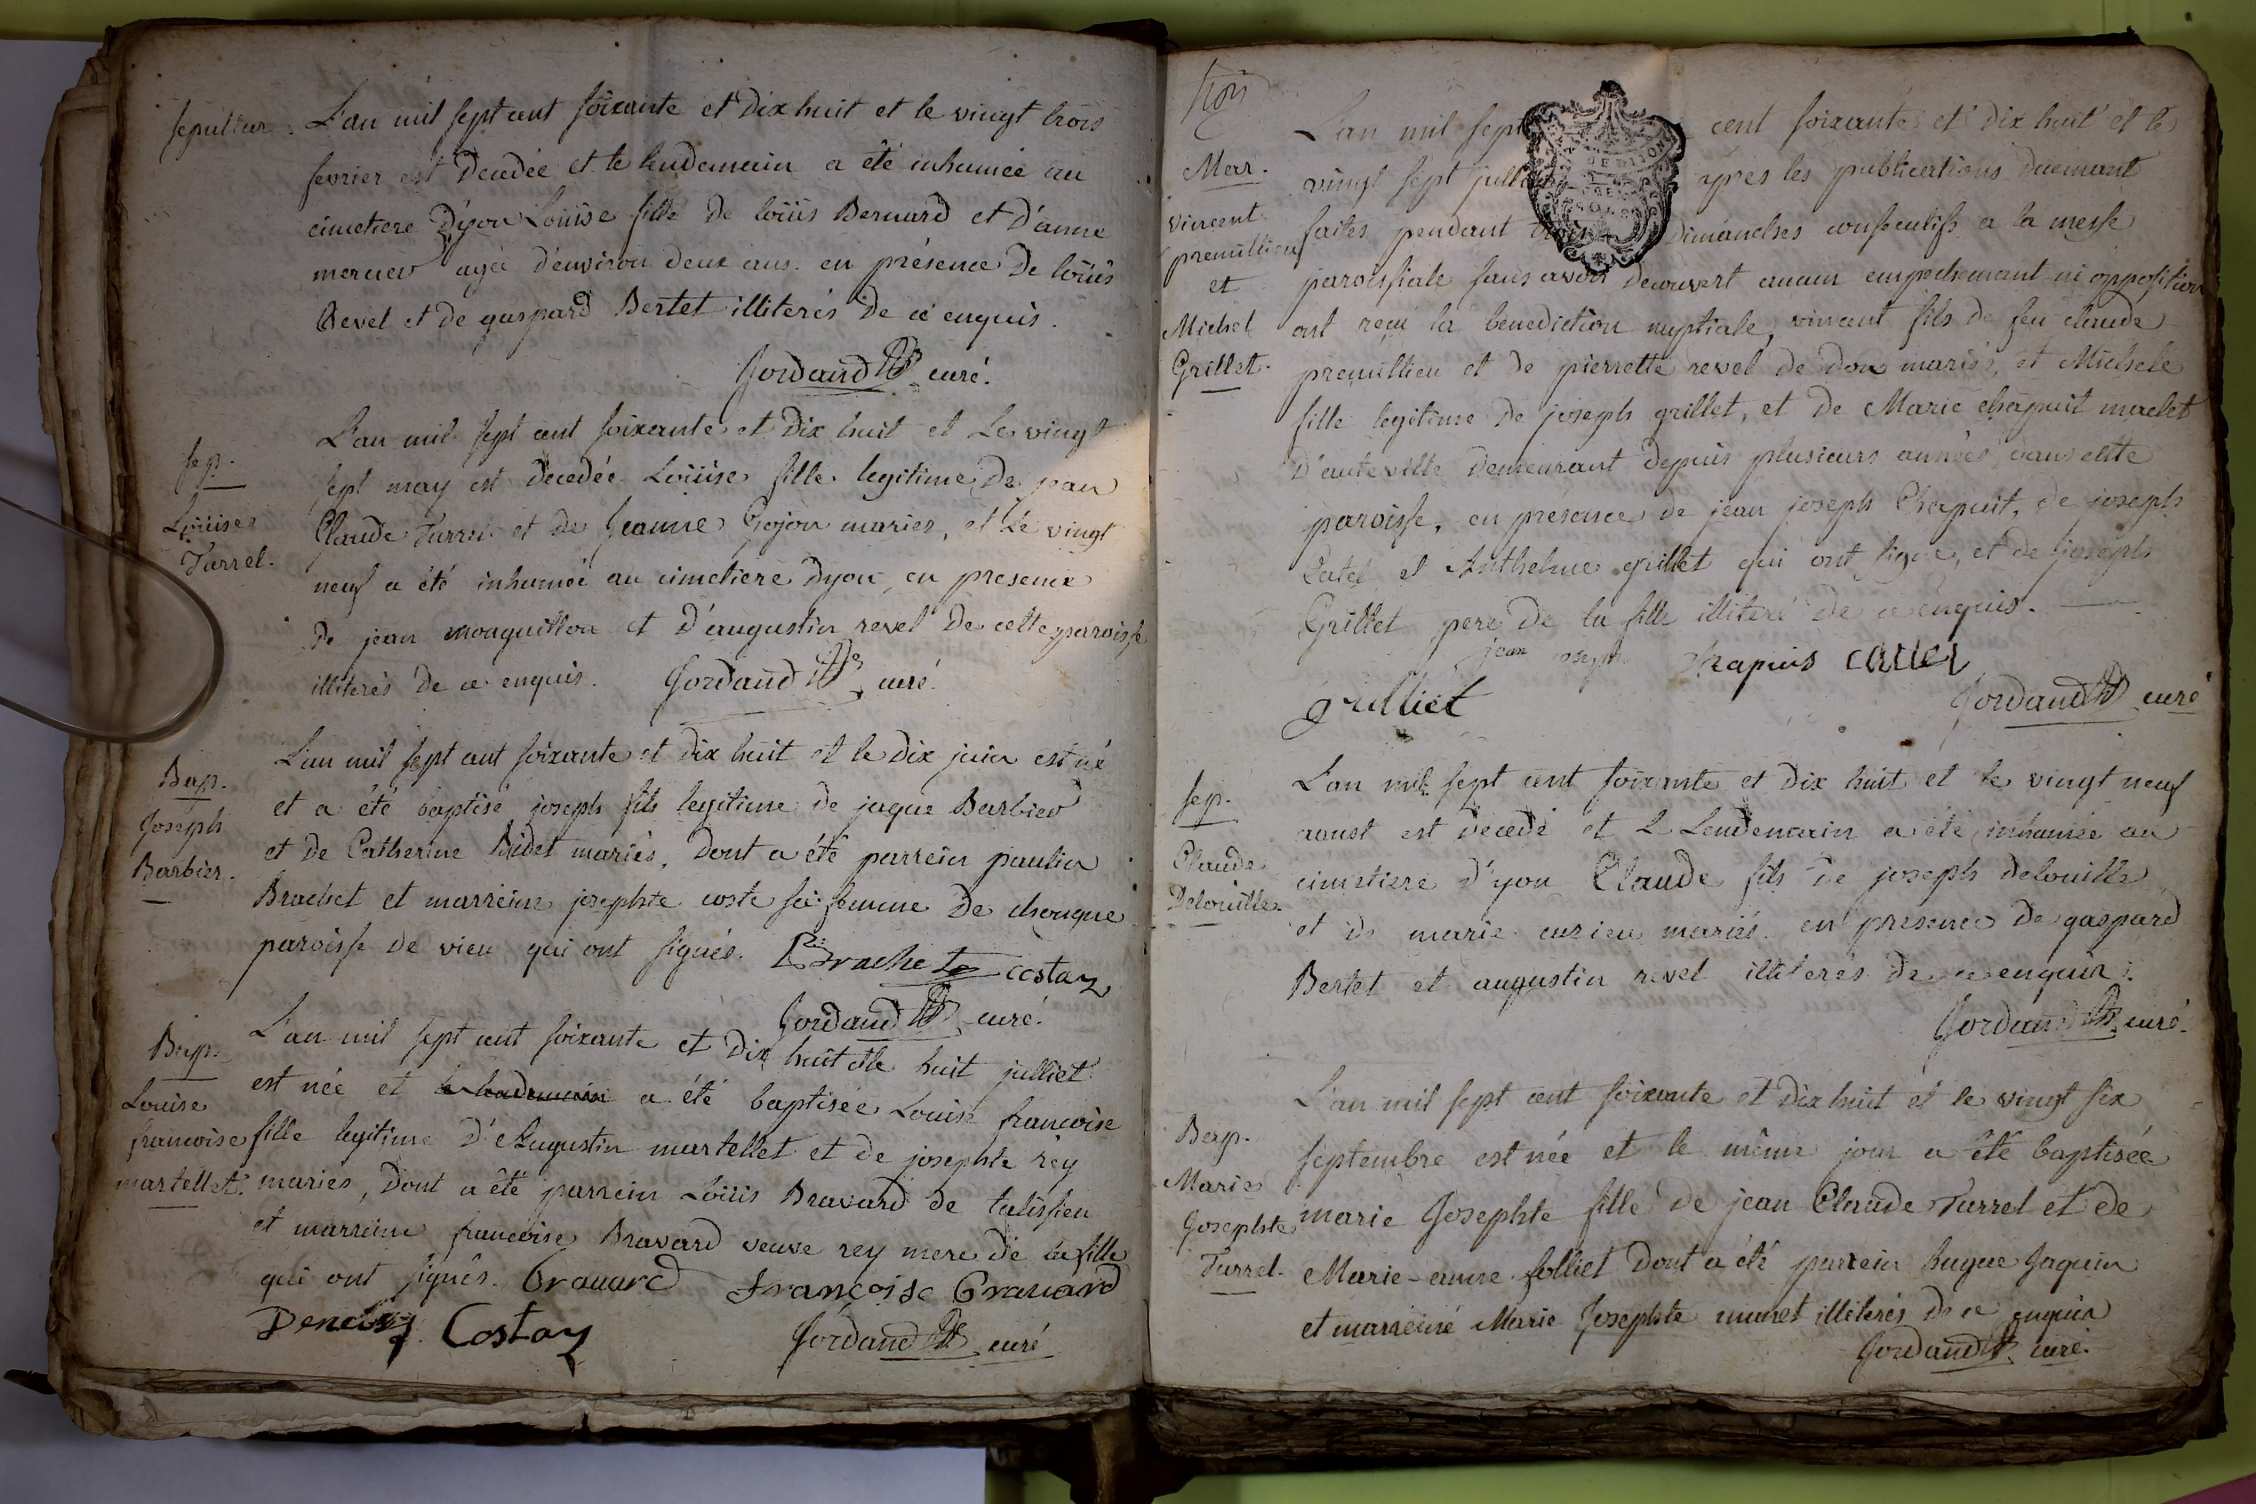 sepultur. L'an mil sept cent soixante et dix huit et le vingt trois
fevrier est decedée et le lendemain a été inhumée au
cimetiere d'yon Loüise fille de loüis Bernard et d'anne
mercier agée d'environ deux ans. en présence de loüis
Revel et de gaspard Bertet illiterés de ce enquis.
Jordand curé.
sep.
Loüise
Turrel.
L'an mil sept cent soixante et dix huit et Le vingt
sept may est decedée Loüise fille legitime de jean
Claude Turrel et de Jeanne Gojon mariés, et Le vingt
neuf a été inhumée au cimetiere dyon, en presence
de jean monguillon et d'augustin revel de cette paroisse
illiterés de ce enquis. Jordand curé.
Bap.
Joseph
Barbier.
L'an mil sept cent soixante et dix huit et le dix juin est né
et a été baptisé joseph fils legitime de jaque Barbier
et de Catherine Bidet mariés, dont a été parrein paulin
Brachet et marreine josephte coste sa femme de chongne
paroisse de vieu qui ont signés. Brachet costaz
Jordand curé.
Bap.
Louise
francoise
martellet.
L'an mil sept cent soixante et dix huit et le huit julliet
est née et le lendemain a été baptisée Louise francoise
fille legitime d'Augustin martellet et de josephte rey
mariés, dont a été parrein Loüis Bravard de talissieu
et marreine francoise Bravard veuve rey mere de la fille
qui ont signés. Bravard francoise Bravard
Costaz Jordand curé
trois
Mar.
vincent
premillieu
et
Michel
Grillet.
L'an mil sept cent soixante et dix huit et le
vingt sept julliet apres les publications duemant
faites pendant trois dimanches conssecutifs a la messe
paroissiale sans avoir decouvert aucun empechemant ni opposition
ont reçu la benediction nuptiale, vincent fils de feu claude
premillieu et de pierrette revel de don mariés, et Michele
fille legitime de joseph grillet, et de Marie chapuit maclet
d'auteville demeurant depuis plusieurs années dans cette
paroisse, en présence de jean joseph Chapuit, de joseph
Catel et Anthelme grillet qui ont signé, et de joseph
Grillet pere de la fille illiteré de ce enquis.
jean joseph chapuis catel
grilliet
Jordand curé
sep.
Claude
Delouille.
L'an mil sept cent soixante et dix huit et le vingt neuf
aoust est decedé et le Lendemain a été inhumée au
cimetiere d'yon Claude fils de joseph delouille
et de marie curieu mariés. en présence de gaspard
Bertet et augustin revel illiterés de ce enquis.
Jordand curé.
Bap.
Marie
Josephte
Turrel.
L'an mil sept cent soixante et dix huit et le vingt six
septembre est née et le même jour a été baptisée
marie Josephte fille de jean Claude Turrel et de
Marie-anne folliet dont a été parrein hugue Jaquin
et marreine Marie Josephte munet illiterés de ce enquis
Jordand curé.